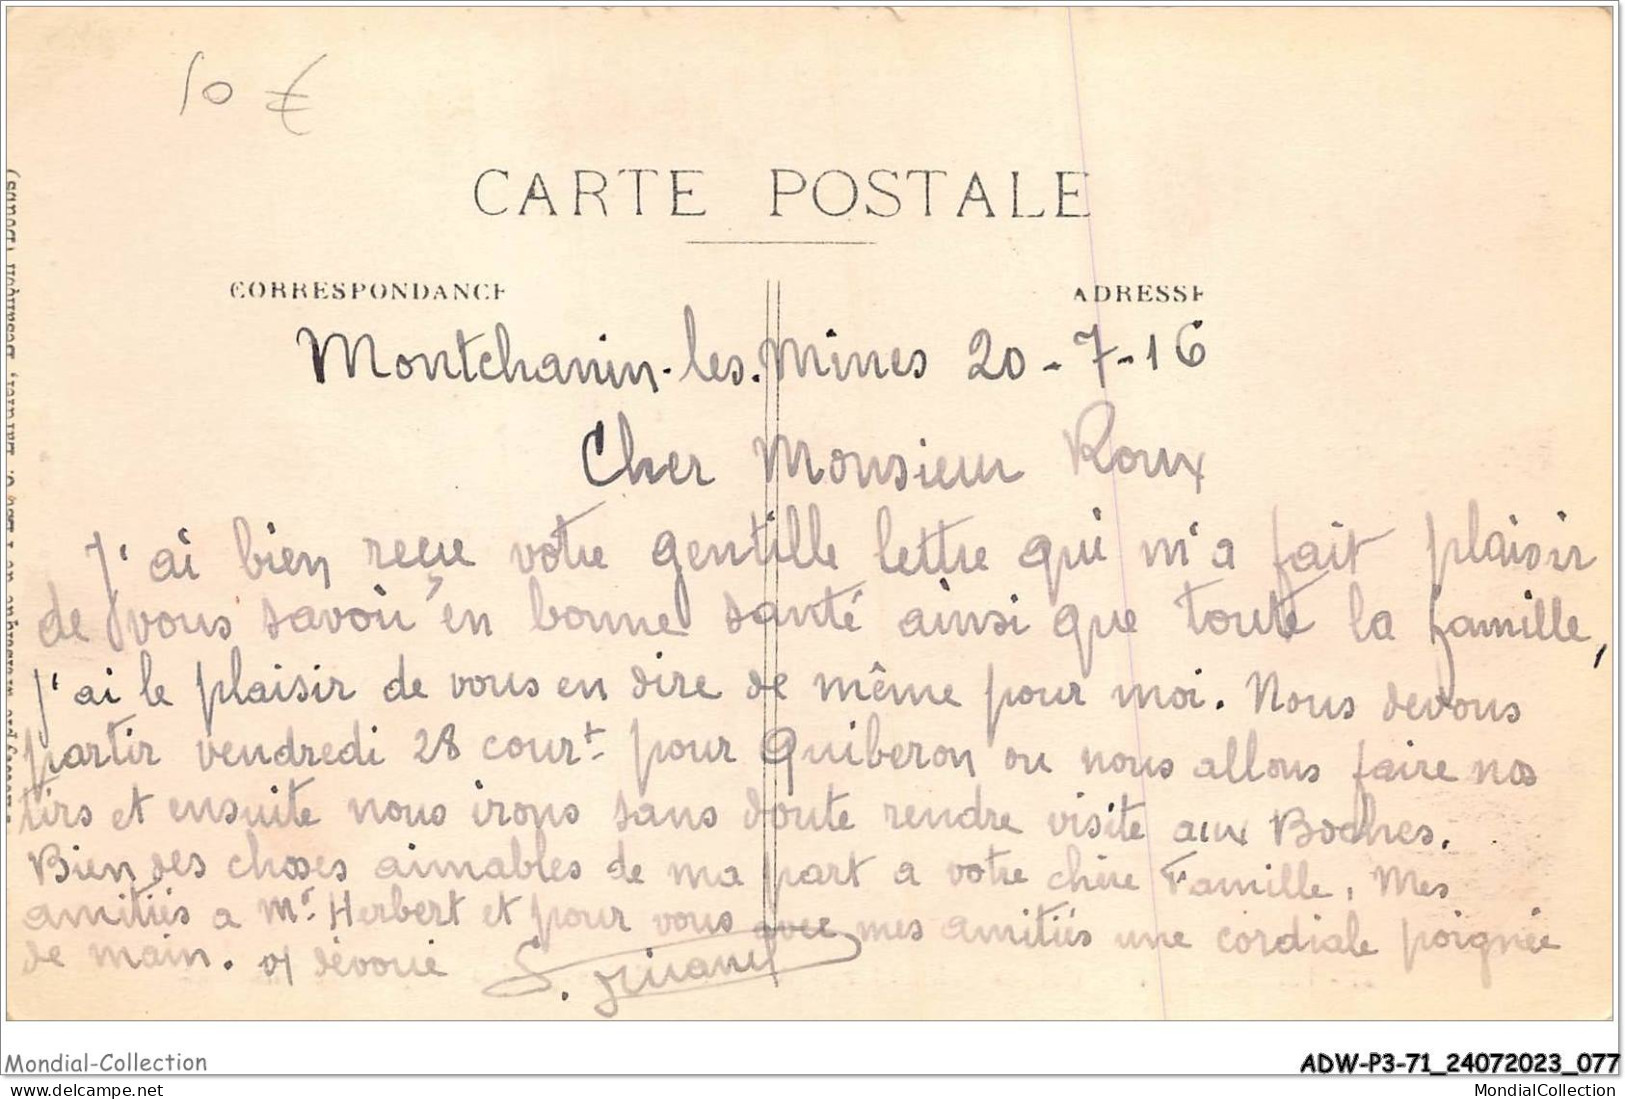 10 €
CARTE POSTALE
CORRESPONDANCE
ADRESSE
Montchanin-les-Mines 20-7-16
Cher Monsieur Roux
J'ai bien reçue votre gentille lettre qui m'a fait plaisir
de vous savoir en bonne santé ainsi que toute la famille,
j'ai le plaisir de vous en dire de même pour moi. Nous devons
partir vendredi 28 court pour Quiberon ou nous allons faire nos
tirs et ensuite nous irons sans doute rendre visite aux Boches.
Bien des choses aimables de ma part a votre chère Famille, Mes
amitiés a Mr Herbert et pour vous avec mes amitiés une cordiale poignée
de main. dévoué S.
Mondial-Collection
ADW-P3-71_24072023_077
www.delcampe.net
MondialCollection